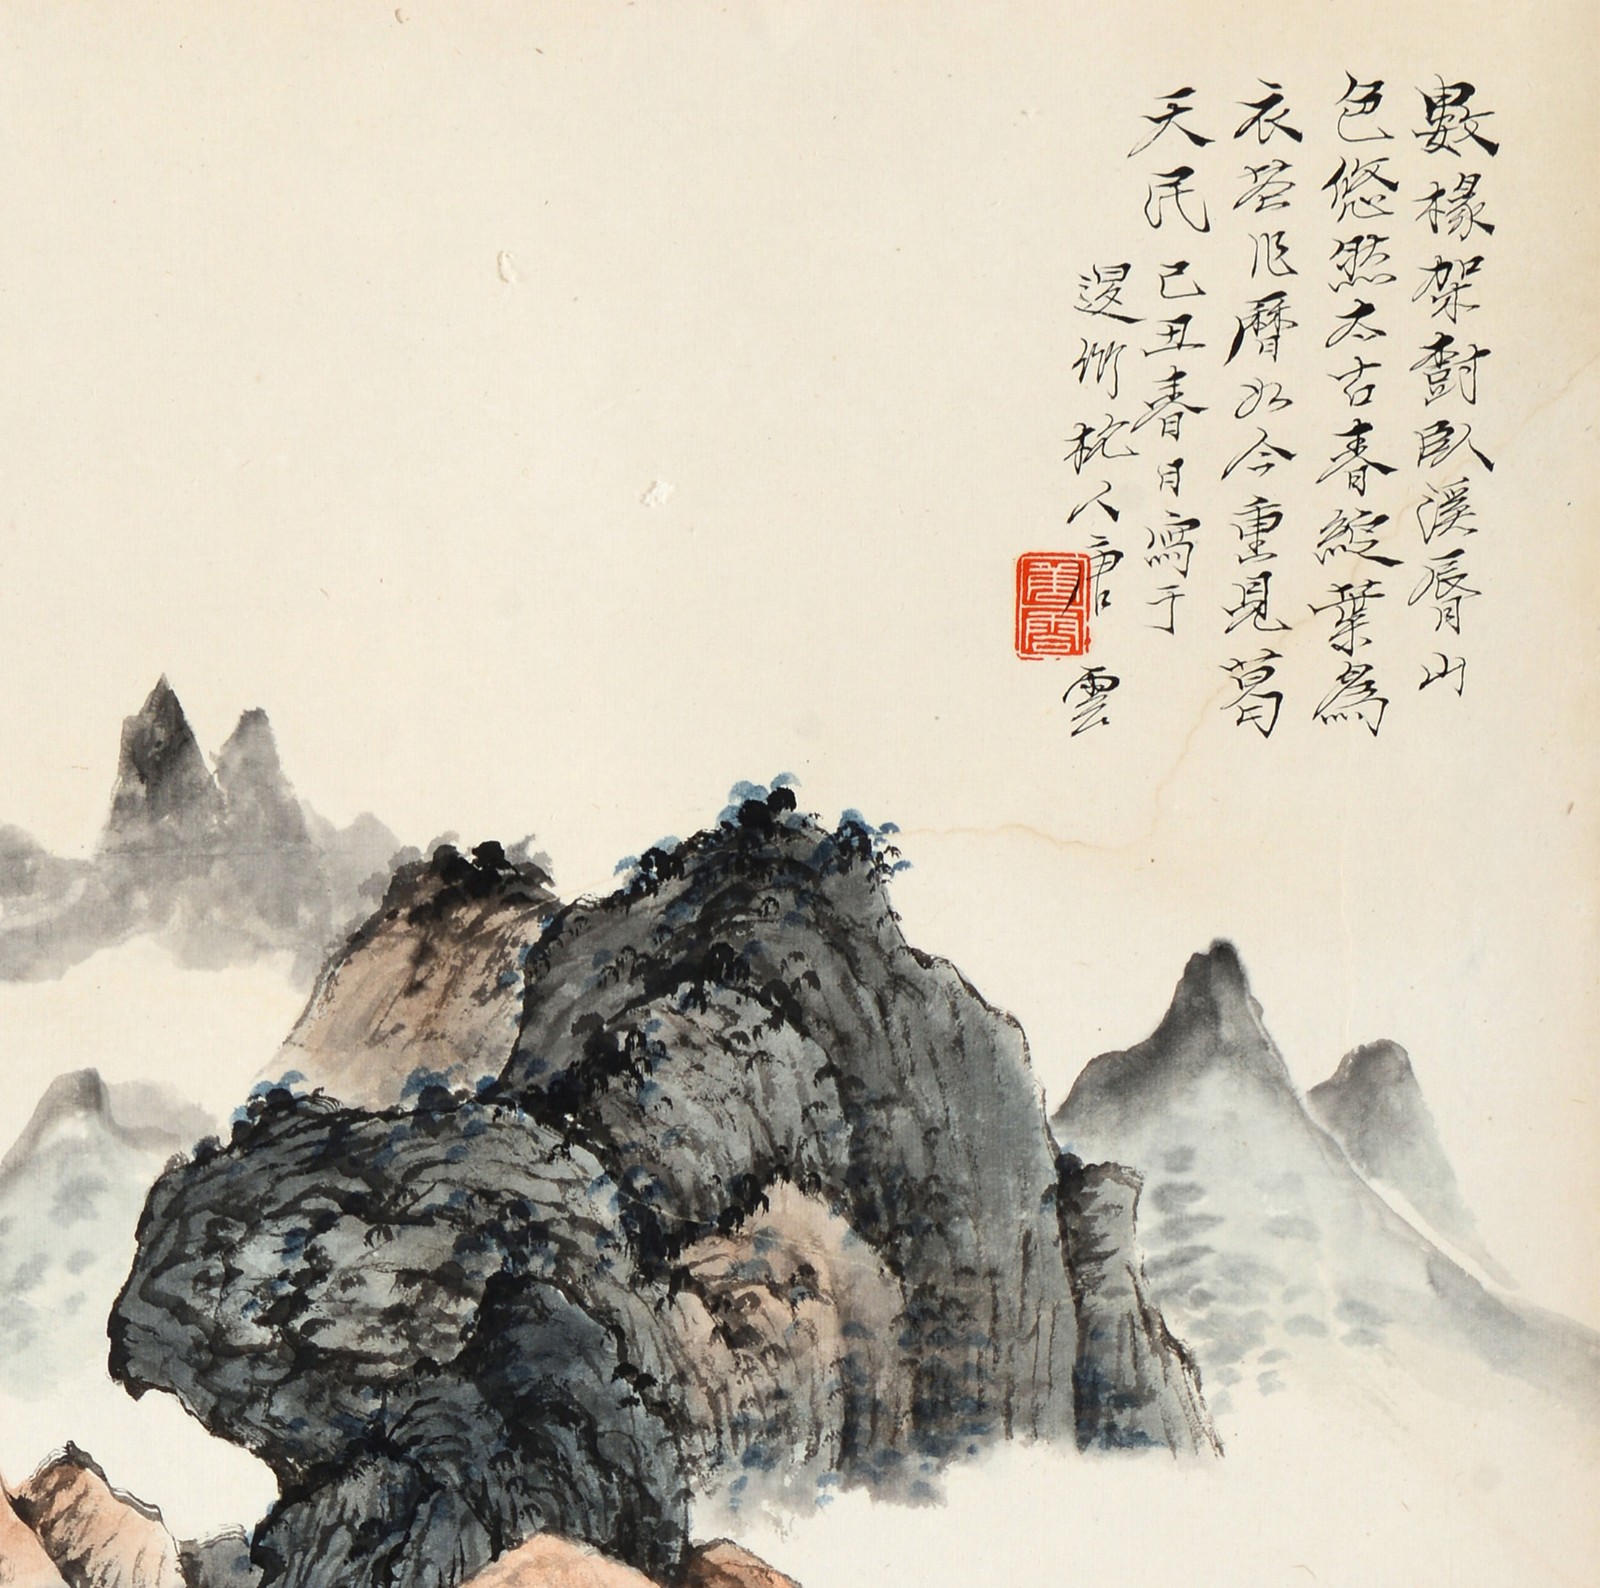 數椽架樹臥溪脣山
色悠然太古春綻葉為
衣苔作曆如今重見葛
天民 己丑春日寫于
杭人唐雲
唐雲